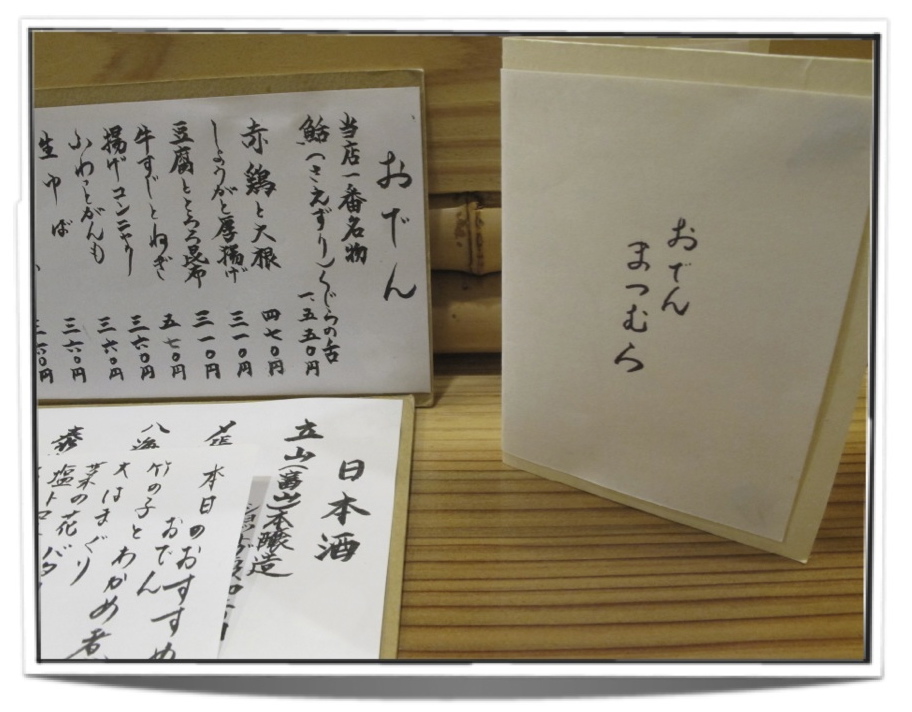 おでん
まつむら
おでん
当店一番名物
鮎(さえずり)くじらの舌 一、五五〇円
赤鶏と大根 四七〇円
しょうがと厚揚げ 三一〇円
豆腐ととろろ昆布 三一〇円
牛すじとねぎ 五七〇円
揚げコンニャク 三六〇円
ふわっとがんも 三六〇円
生ゆば 三六〇円
三六〇円
日本酒
立山(富山)本醸造
八海
本日のおすすめ
おでん
竹の子とわかめ煮
大はまぐり
菜の花
塩トマ
バタ